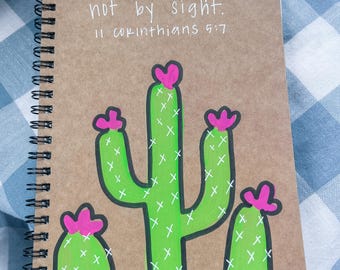 not by sight.
11 corinthians 5:7